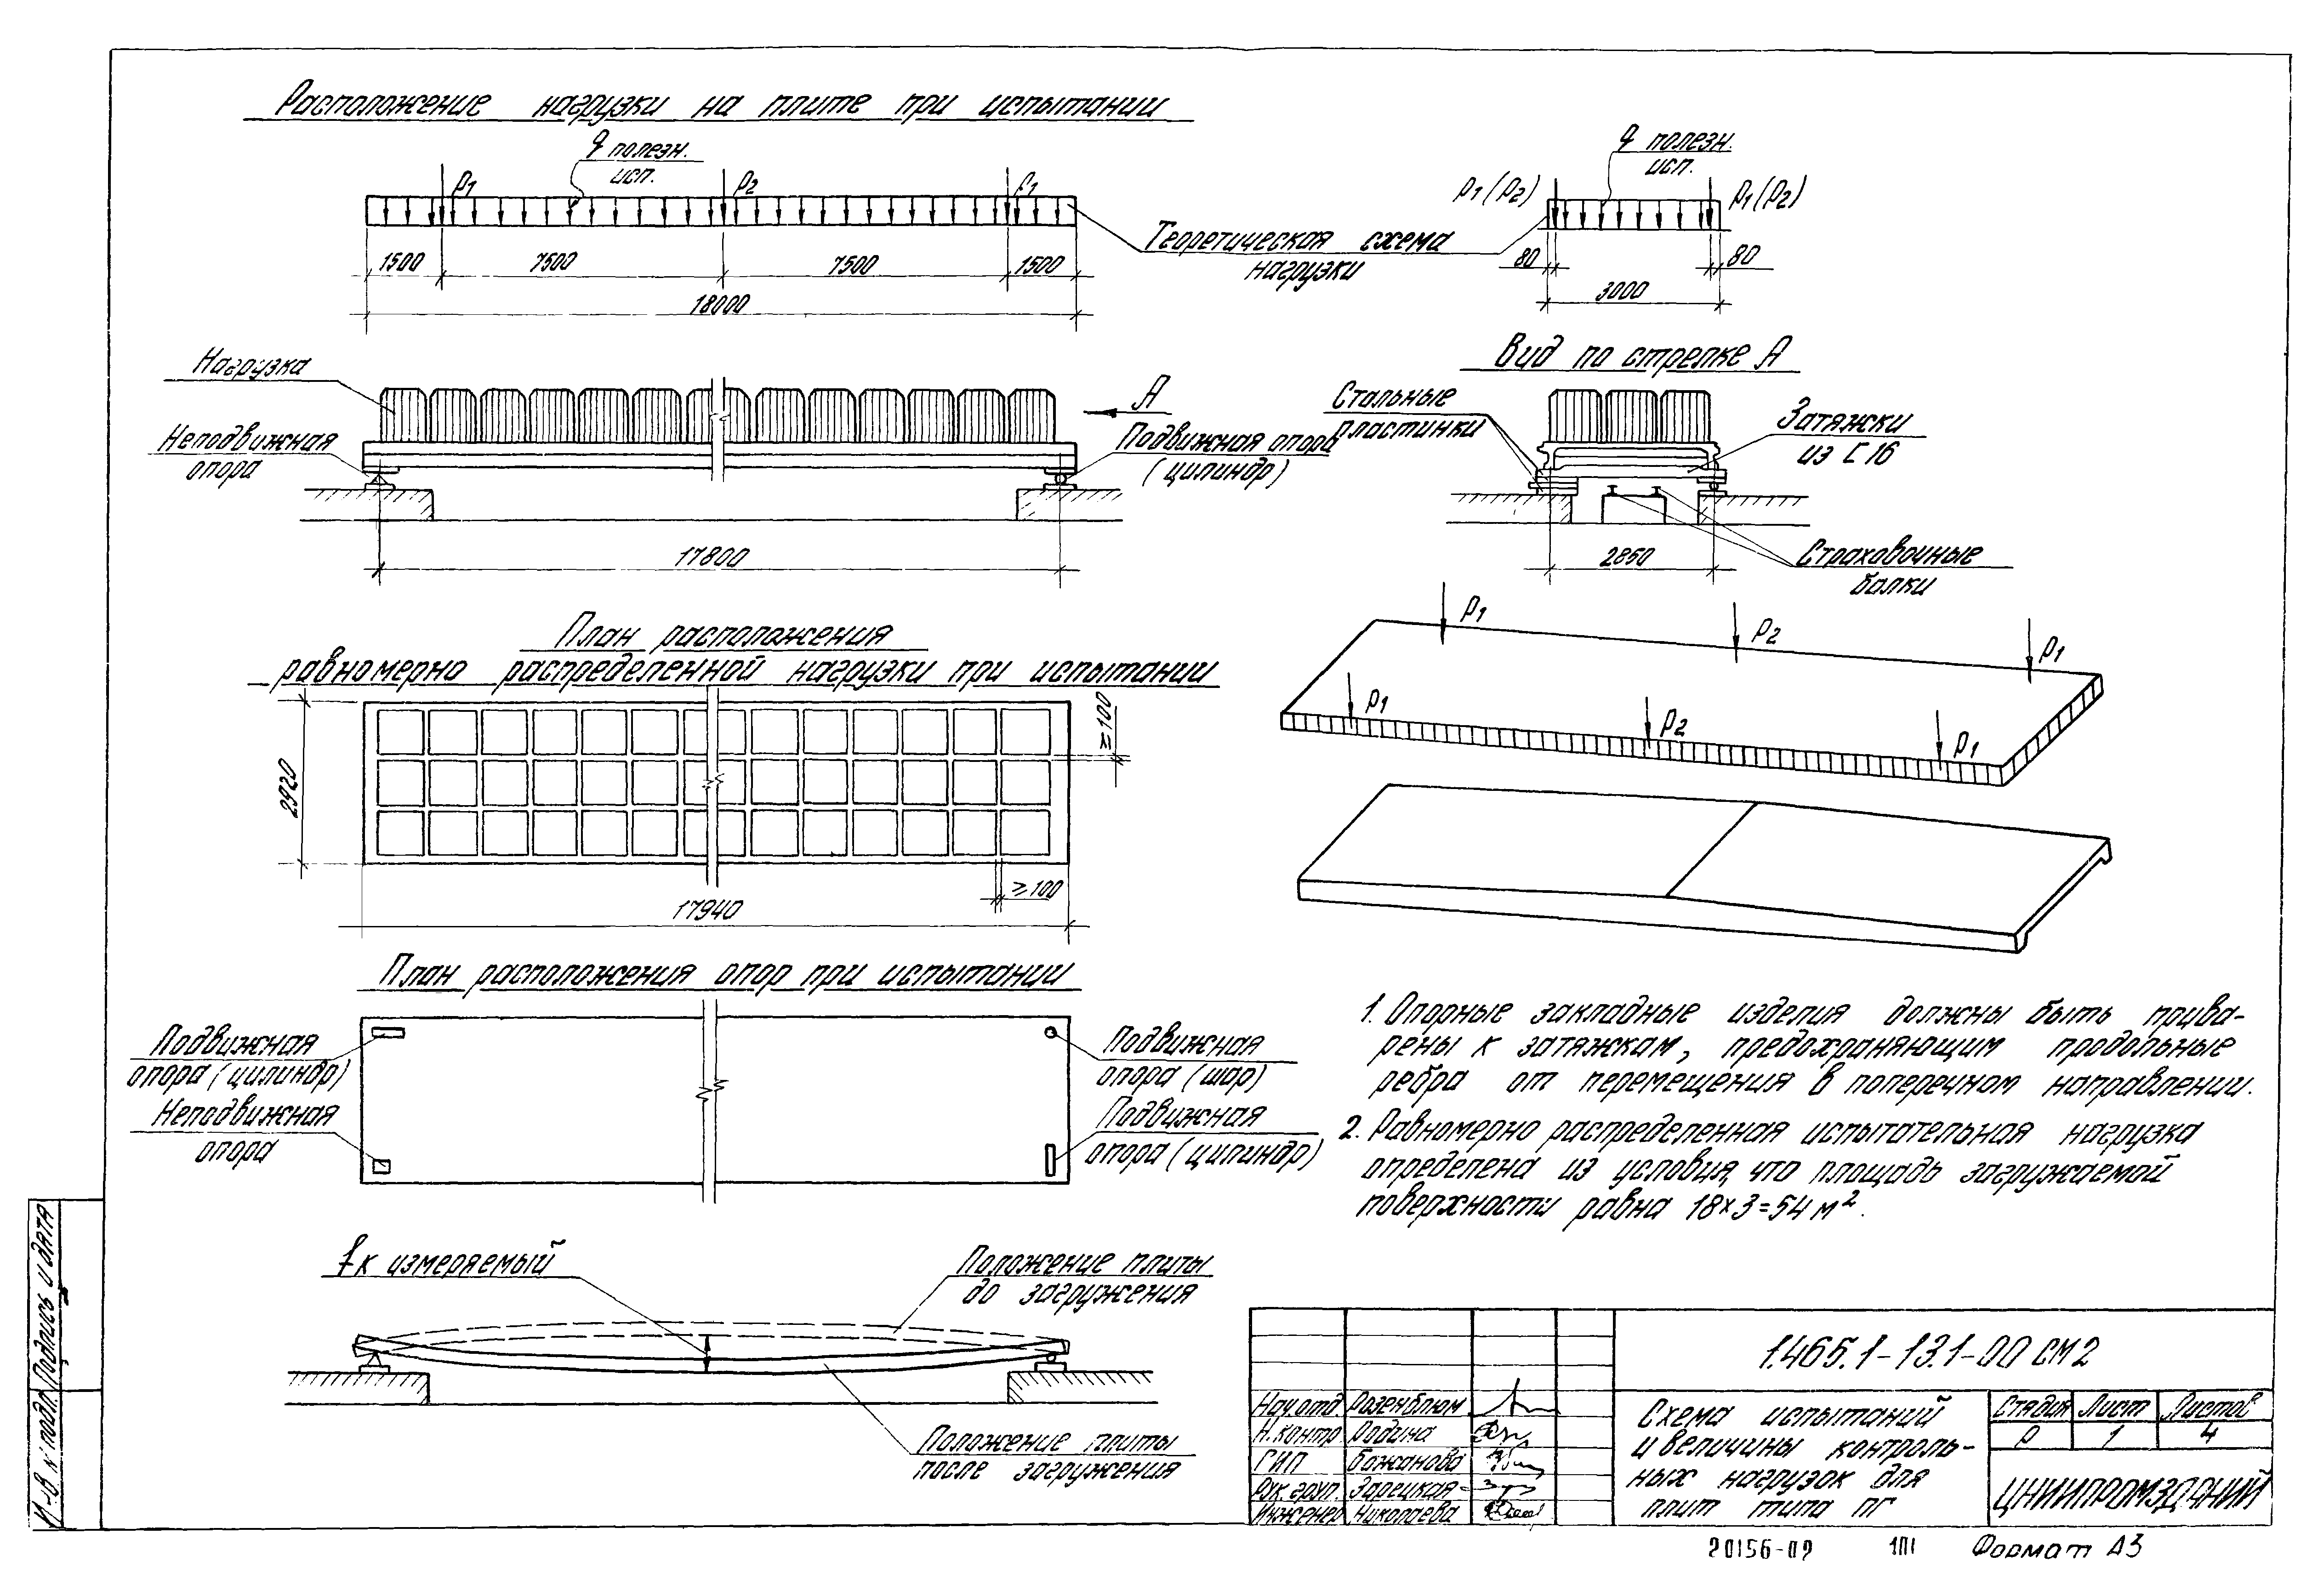 Расположение нагрузки на плите при испытании
q полезн.
исп.
P1
P2
P1
1500
7500
7500
1500
18000
Теоретическая схема
нагрузки
q полезн.
исп.
P1(P2)
P1(P2)
80
80
3000
Нагрузка
Неподвижная
опора
А
Подвижная опора
(цилиндр)
17800
Вид по стрелке А
Стальные
пластинки
Затяжки
из С 16
2850
Страховочные
балки
План расположения
равномерно распределенной нагрузки при испытании
2920
≥100
≥100
17940
P1
P2
P1
P1
P2
P1
План расположения опор при испытании
Подвижная
опора (цилиндр)
Неподвижная
опора
Подвижная
опора (шар)
Подвижная
опора (цилиндр)
fк измеряемый
Положение плиты
до загружения
Положение плиты
после загружения
1. Опорные закладные изделия должны быть прива-
рены к затяжкам, предохраняющим продольные
ребра от перемещения в поперечном направлении.
2. Равномерно распределенная испытательная нагрузка
определена из условия, что площадь загружаемой
поверхности равна 18×3=54 м².
1.465.1-13.1-00 СМ2
Нач.отд. Розенблюм
Н.контр. Родина
ГИП Божанова
Рук.груп. Зарецкая
Инженер Николаева
Схема испытаний
и величины контроль-
ных нагрузок для
плит типа ПГ
Стадия Лист Листов
Р 1 4
ЦНИИПРОМЗДАНИЙ
20156-02
Формат А3
Подпись и дата